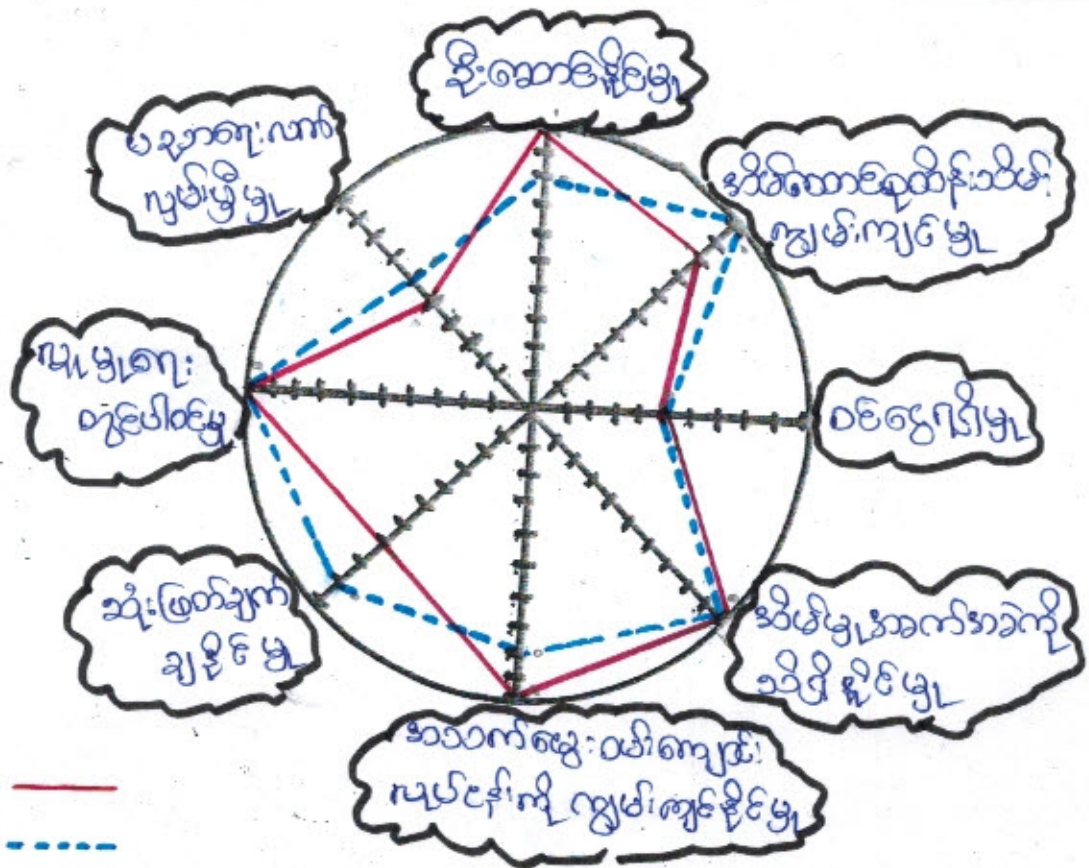 ဦးဆောင်နိုင်မှု
အိမ်ထောင်စုထိန်းသိမ်း
ကျွမ်းကျင်မှု
ဝင်ငွေရရှိမှု
အိမ်မှုအခက်အခဲကို
သိရှိနိုင်မှု
အသက်မွေးဝမ်းကျောင်း
လုပ်ငန်းကို ကျွမ်းကျင်နိုင်မှု
ဆုံးဖြတ်ချက်
ချနိုင်မှု
လူမှုရေး
တွင်ပါဝင်မှု
ပညာရေးလက်
လှမ်းမှီမှု